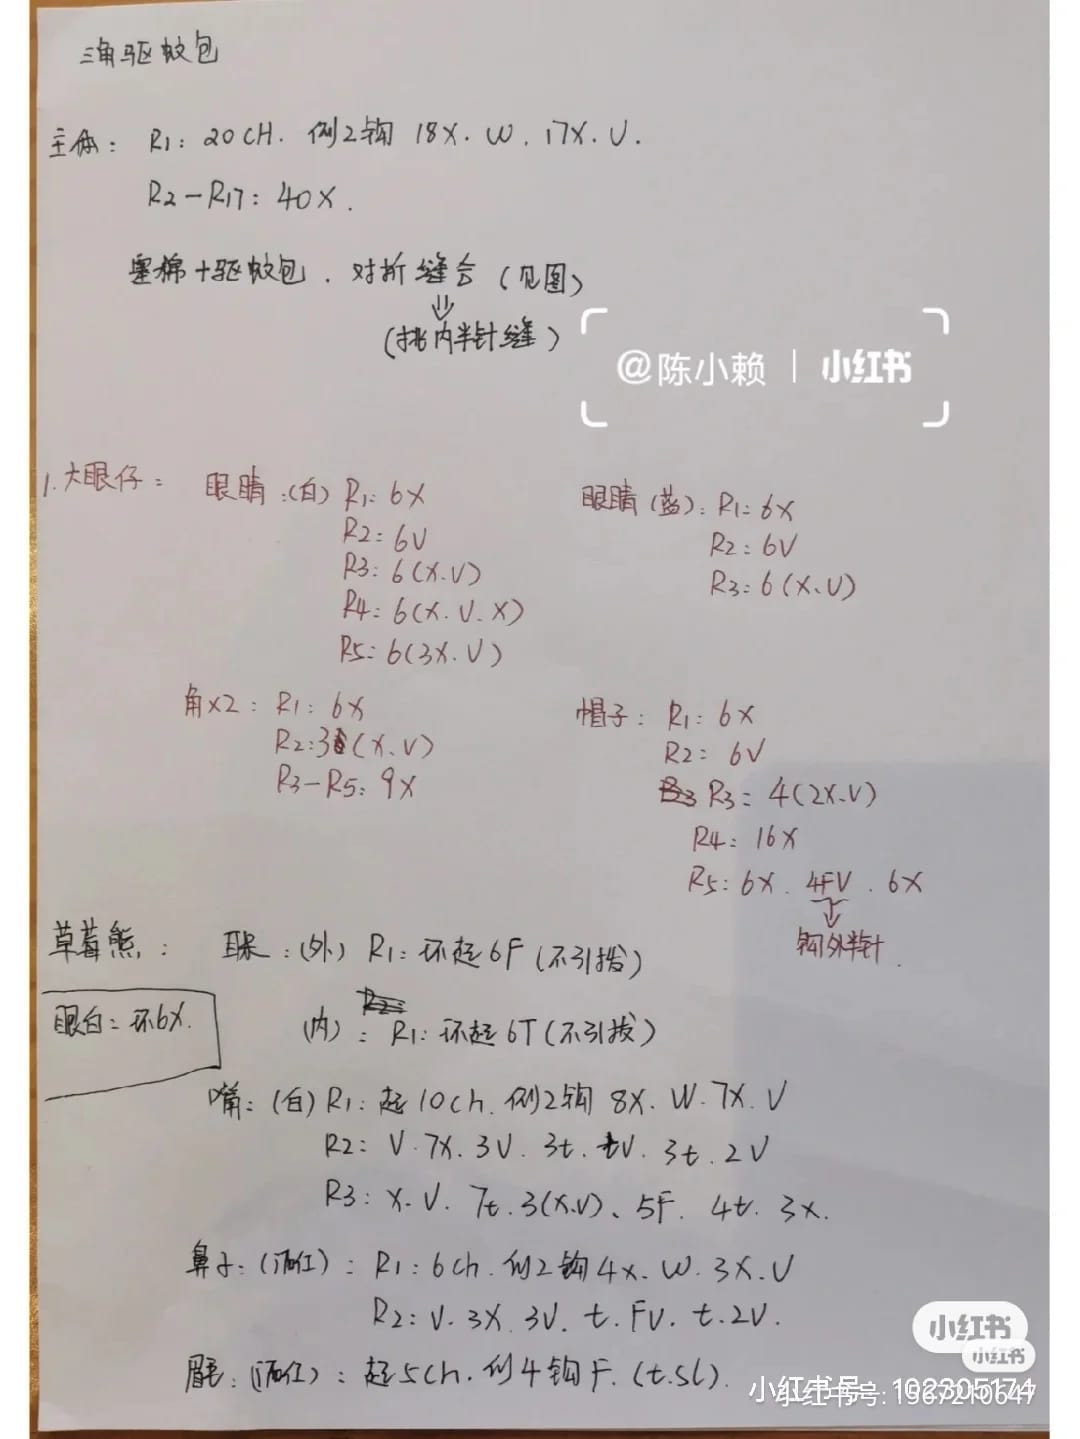 三角驱蚊包
主体: R1: 20CH. 倒2钩 18X. W. 17X. V.
R2-R17: 40X.
塞棉+驱蚊包. 对折缝合 (见图)
(挑内半针缝)
@陈小赖 | 小红书
1. 大眼仔: 眼睛:(白) R1: 6X
R2: 6V
R3: 6(X.V)
R4: 6(X.V.X)
R5: 6(3X.V)
眼睛(蓝): R1: 6X
R2: 6V
R3: 6(X.V)
角x2: R1: 6X
R2: 3(X.V)
R3-R5: 9X
帽子: R1: 6X
R2: 6V
R3: 4(2X.V)
R4: 16X
R5: 6X. 4FV. 6X
钩外半针.
草莓熊: 耳朵:(外) R1: 环起6F(不引拔)
眼白: 环6X.
(内): R1: 环起6T(不引拔)
嘴:(白) R1: 起10ch. 倒2钩 8X. W. 7X. V
R2: V. 7X. 3V. 3t. tV. 3t. 2V
R3: X. V. 7t. 3(X.V)、5F. 4t. 3X.
鼻子:(酒红): R1: 6ch. 倒2钩4X. W. 3X. V
R2: V. 3X. 3V. t. FV. t. 2V.
眉毛:(酒红): 起5ch. 倒4钩F. (t.sl).
小红书
小红书
小红书号: 102305174
小红书号: 1567210647